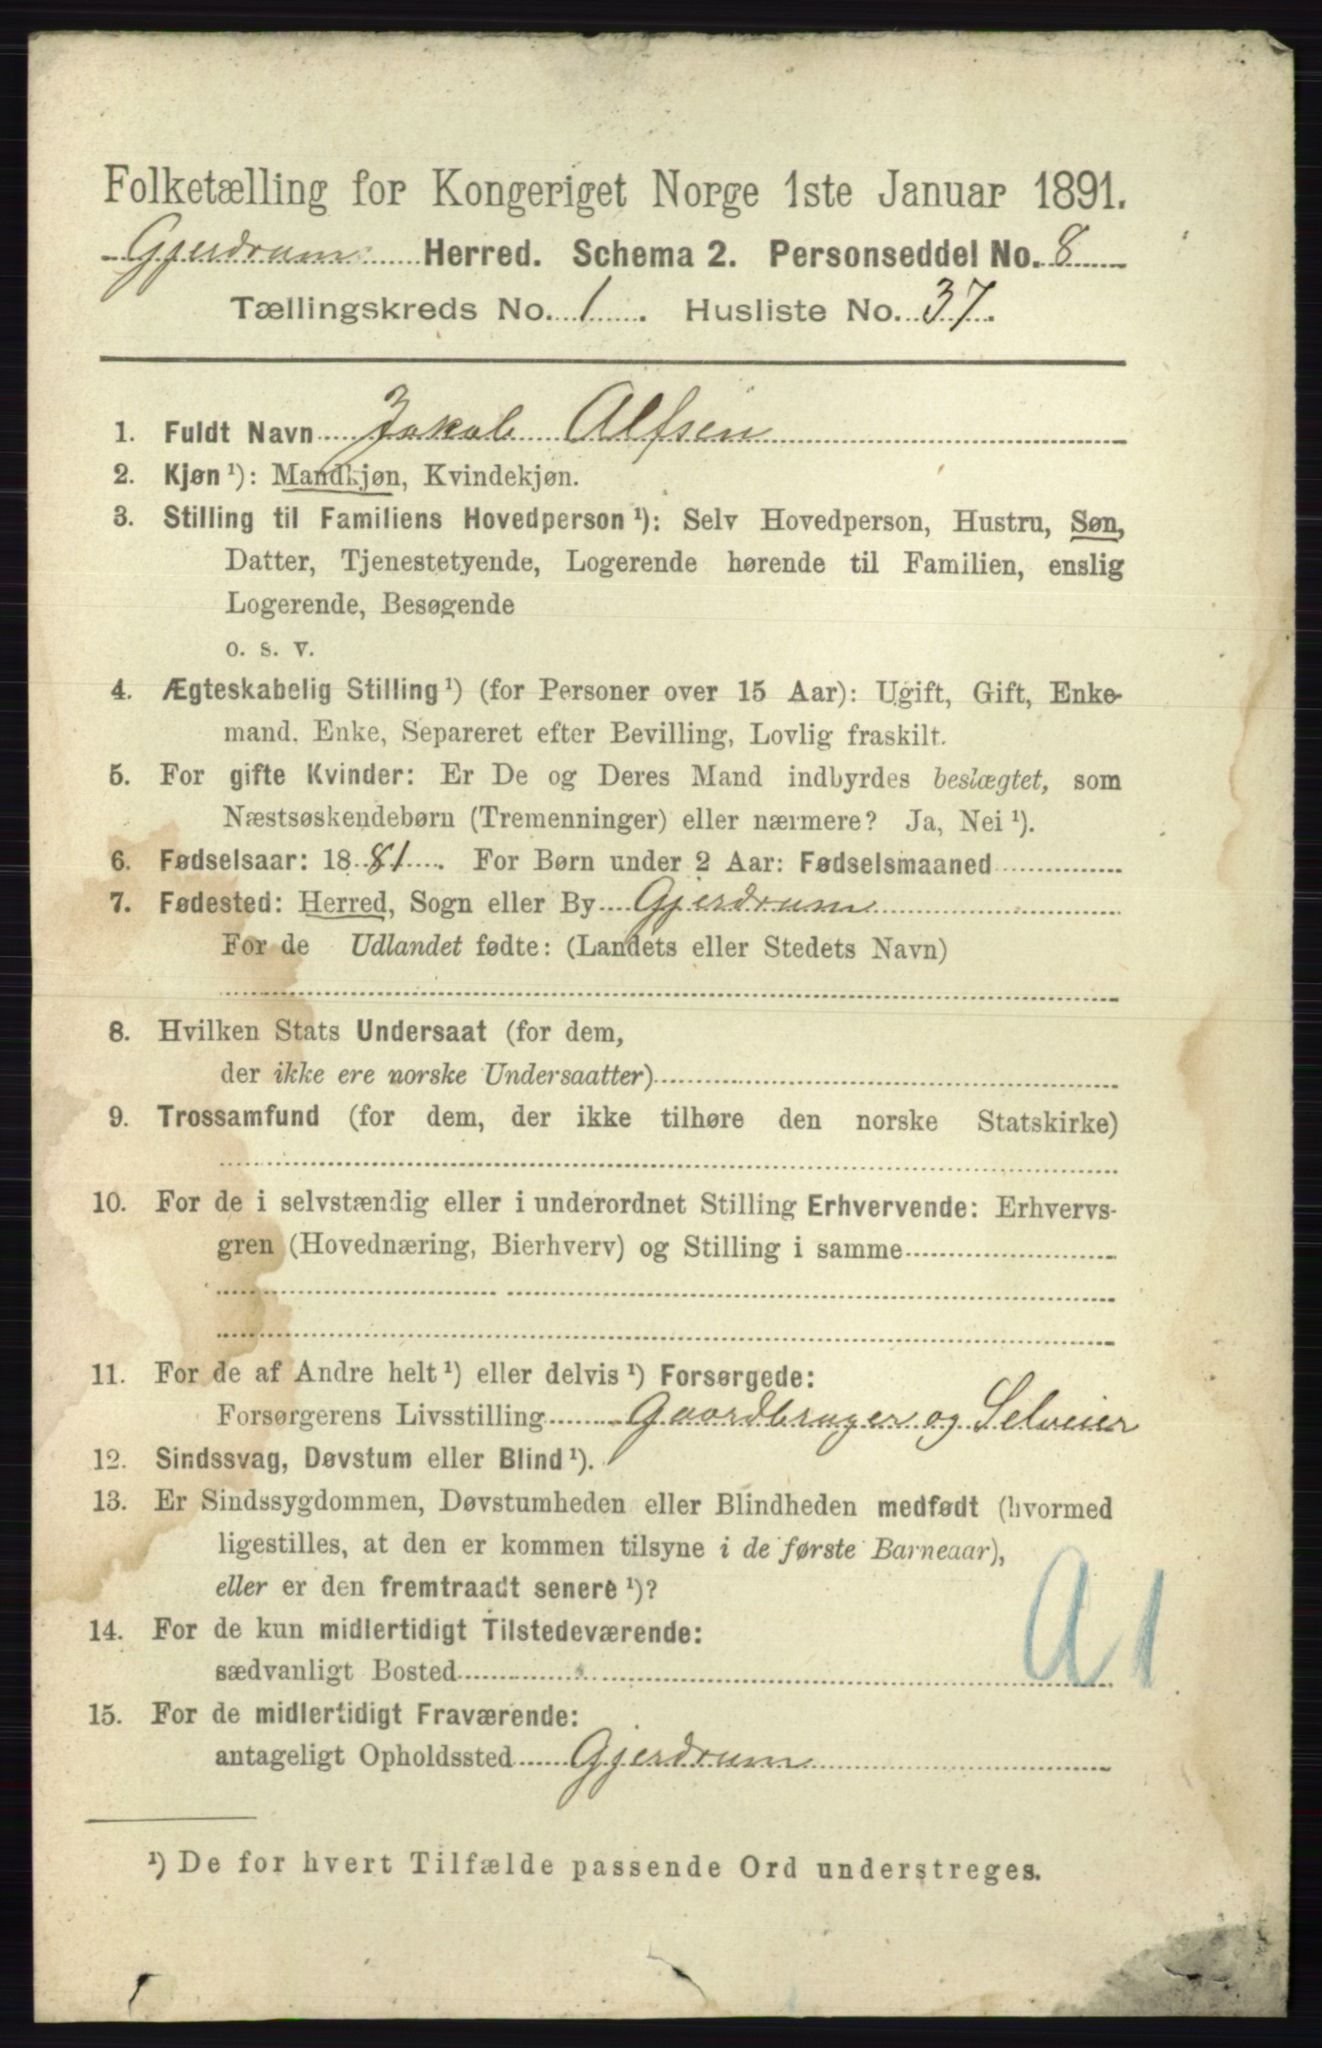 Folketælling for Kongeriget Norge 1ste Januar 1891.
Gjerdrum Herred. Schema 2. Personseddel No. 8
Tællingskreds No. 1. Husliste No. 37.
1. Fuldt Navn Jakob Alfsen
2. Kjøn¹): Mandkjøn, Kvindekjøn.
3. Stilling til Familiens Hovedperson¹): Selv Hovedperson, Hustru, Søn,
Datter, Tjenestetyende, Logerende hørende til Familien, enslig
Logerende, Besøgende
o. s. v.
4. Ægteskabelig Stilling¹) (for Personer over 15 Aar): Ugift, Gift, Enke-
mand, Enke, Separeret efter Bevilling, Lovlig fraskilt.
5. For gifte Kvinder: Er De og Deres Mand indbyrdes beslægtet, som
Næstsøskendebørn (Tremenninger) eller nærmere? Ja, Nei¹).
6. Fødselsaar: 1881. For Børn under 2 Aar: Fødselsmaaned
7. Fødested: Herred, Sogn eller By Gjerdrum
For de Udlandet fødte: (Landets eller Stedets Navn)
8. Hvilken Stats Undersaat (for dem,
der ikke ere norske Undersaatter)
9. Trossamfund (for dem, der ikke tilhøre den norske Statskirke)
10. For de i selvstændig eller i underordnet Stilling Erhvervende: Erhvervs-
gren (Hovednæring, Bierhverv) og Stilling i samme
11. For de af Andre helt¹) eller delvis¹) Forsørgede:
Forsørgerens Livsstilling Gaardbruger og Selveier
12. Sindssvag, Døvstum eller Blind¹).
13. Er Sindssygdommen, Døvstumheden eller Blindheden medfødt (hvormed
ligestilles, at den er kommen tilsyne i de første Barneaar),
eller er den fremtraadt senere¹)?
A1
14. For de kun midlertidigt Tilstedeværende:
sædvanligt Bosted
15. For de midlertidigt Fraværende:
antageligt Opholdssted Gjerdrum
¹) De for hvert Tilfælde passende Ord understreges.